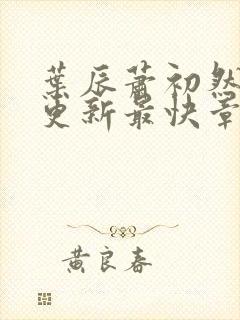 葉辰蕭初然
更新最快章
黄良春